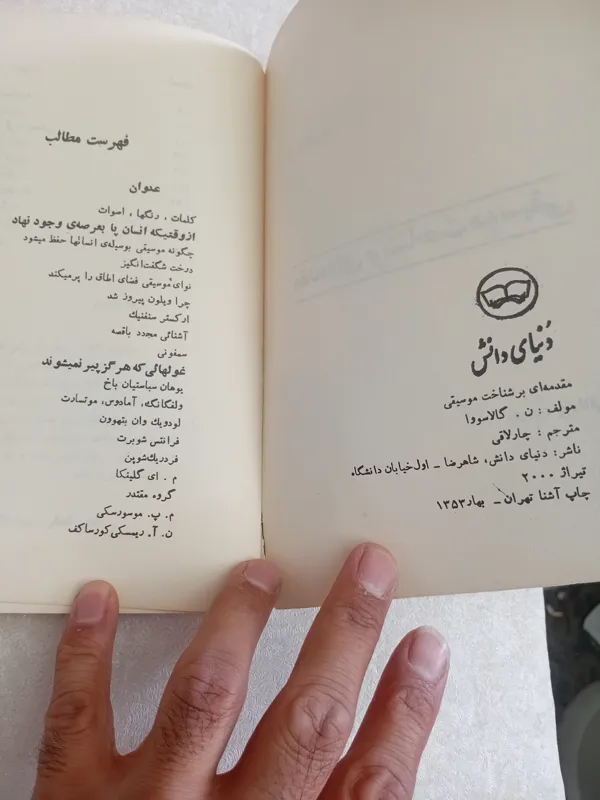 دنیای دانش
مقدمه‌ای بر شناخت موسیقی
مولف : ن . گالاسووا
مترجم : چارلاقی
ناشر : دنیای دانش، شاهرضا – اول خیابان دانشگاه
تیراژ ۲۰۰۰
چاپ آشنا تهران – بهار ۱۳۵۳
فهرست مطالب
عنوان
کلمات ، رنگها ، اصوات
از وقتیکه انسان پا بعرصه‌ی وجود نهاد
چگونه موسیقی بوسیله‌ی انسانها حفظ میشود
درخت شگفت‌انگیز
نوای موسیقی فضای اطاق را پرمیکند
چرا ویلون پیروز شد
ارکستر سنفنیک
آشنائی مجدد باقصه
سمفونی
غولهائی که هرگز پیر نمیشوند
یوهان سباستیان باخ
ولفگانگ، آمادوس، موتسارت
لودویک وان بتهوون
فرانتس شوبرت
فردریک شوپن
م . ای گلینکا
گروه مقتدر
م . پ. موسورسکی
ن . آ . ریمسکی کورساکف